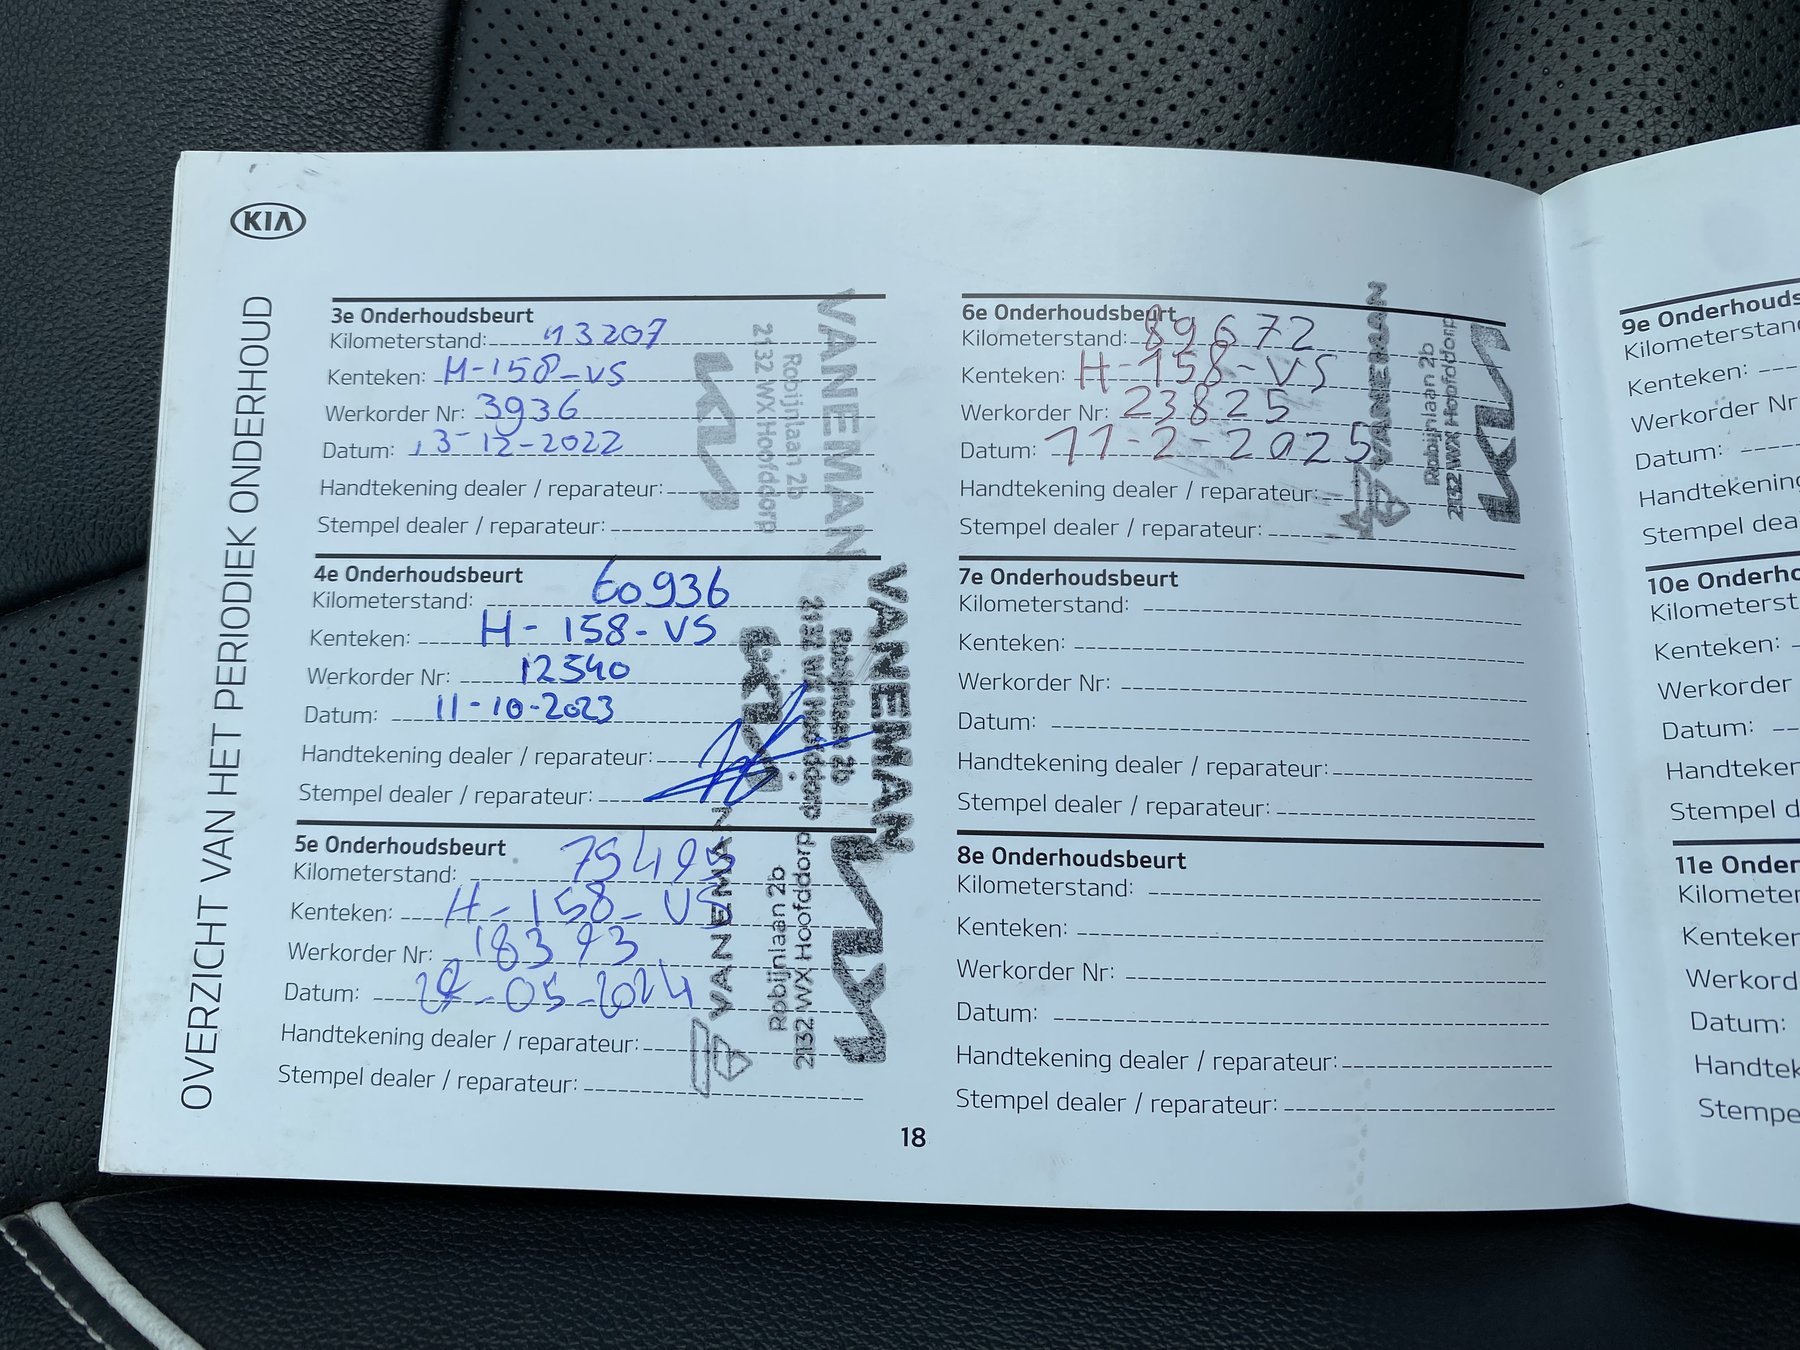 KIA
OVERZICHT VAN HET PERIODIEK ONDERHOUD
3e Onderhoudsbeurt
Kilometerstand: 13207
Kenteken: H-158-VS
Werkorder Nr: 3936
Datum: 13-12-2022
Handtekening dealer / reparateur:
Stempel dealer / reparateur:
VANEMAN
Robijnlaan 2b
2132 WX Hoofddorp
KIA
4e Onderhoudsbeurt
Kilometerstand: 60936
Kenteken: H-158-VS
Werkorder Nr: 12540
Datum: 11-10-2023
Handtekening dealer / reparateur:
Stempel dealer / reparateur:
VANEMAN
Robijnlaan 2b
2132 WX Hoofddorp
KIA
5e Onderhoudsbeurt
Kilometerstand: 75495
Kenteken: H-158-VS
Werkorder Nr: 18393
Datum: -05-2024
Handtekening dealer / reparateur:
Stempel dealer / reparateur:
VANEMAN
Robijnlaan 2b
2132 WX Hoofddorp
KIA
6e Onderhoudsbeurt
Kilometerstand: 89672
Kenteken: H-158-VS
Werkorder Nr: 23825
Datum: 11-2-2025
Handtekening dealer / reparateur:
Stempel dealer / reparateur:
VANEMAN
Robijnlaan 2b
2132 WX Hoofddorp
KIA
7e Onderhoudsbeurt
Kilometerstand:
Kenteken:
Werkorder Nr:
Datum:
Handtekening dealer / reparateur:
Stempel dealer / reparateur:
8e Onderhoudsbeurt
Kilometerstand:
Kenteken:
Werkorder Nr:
Datum:
Handtekening dealer / reparateur:
Stempel dealer / reparateur:
18
9e Onderhouds
Kilometerstan
Kenteken:
Werkorder Nr
Datum:
Handtekening
Stempel dea
10e Onderho
Kilometerst
Kenteken:
Werkorder
Datum:
Handteken
Stempel d
11e Onder
Kilometer
Kenteken
Werkord
Datum:
Handtek
Stempe